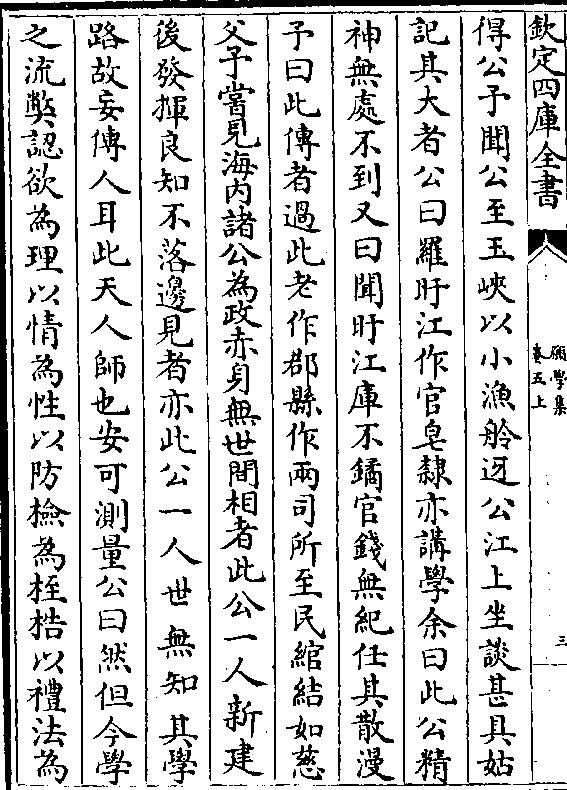 欽定四庫全書
願學集
卷五上
三
得公予聞公至玉峽以小漁舲迓公江上坐談甚具姑
記其大者公曰羅旴江作官皂隸亦講學余曰此公精
神無處不到又曰聞旴江庫不鐍官錢無紀任其散漫
予曰此傳者過此老作郡縣作兩司所至民綰結如慈
父子嘗見海内諸公為政赤身無世間相者此公一人新建
後發揮良知不落邊見者亦此公一人世無知其學
路故妄傳人耳此天人師也安可測量公曰然但今學
之流弊認欲為理以情為性以防檢為桎梏以禮法為